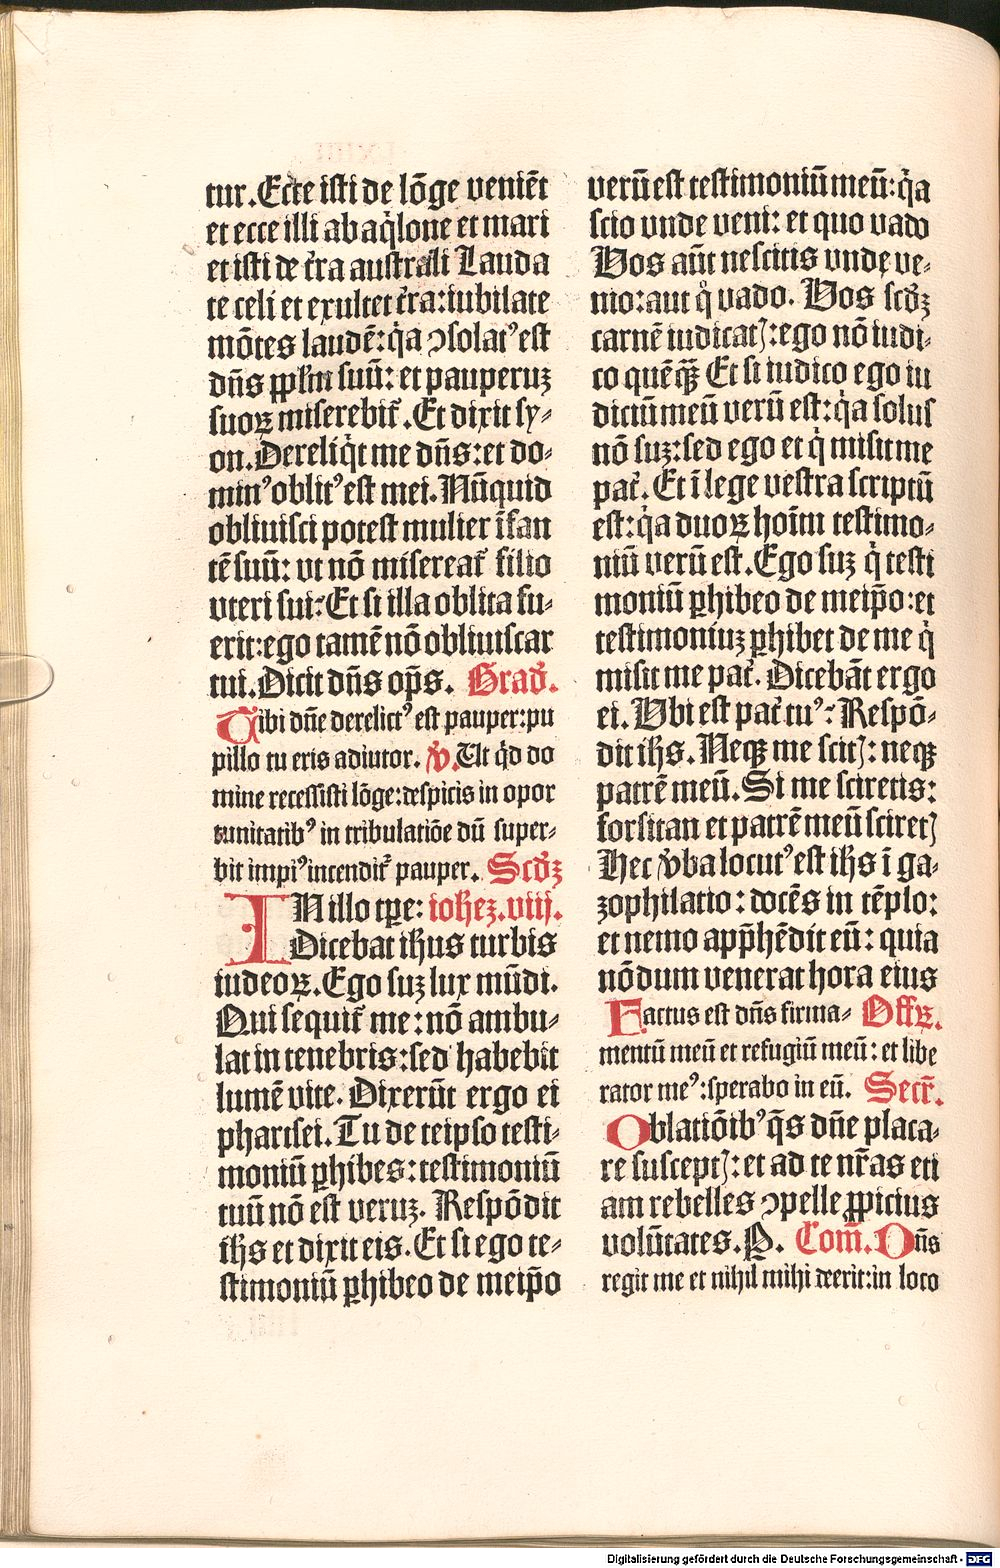 tur. Ecce isti de lõge veniẽt
et ecce illi ab aq̇lone et mari
et isti de t̃ra australi Lauda
te celi et exultet t̃ra: iubilate
mõtes laudẽ: q̇a ↄsolatꝰ est
dñs ꝓpl̃m suũ: et pauperuꝫ
suoꝝ miserebit̃. Et dixit sy-
on. Dereliq̇t me dñs: et do-
minꝰ oblitꝰ est mei. Nũquid
obliuisci potest mulier ĩfan
tẽ suũ: vt nõ misereat̃ filio
vteri sui: Et si illa oblita fu-
erit: ego tamẽ nõ obliuiscar
tui. Dicit dñs op̃s. Grad̃.
Tibi dñe derelictꝰ est pauper: pu
pillo tu eris adiutor. ꝟ. Ut q̇d do
mine recessisti lõge: despicis in opor
tunitatibꝰ in tribulatiõe dũ super-
bit impiꝰ incendit̃ pauper. Scd̃ꝫ
IN illo tp̃e: ioheꝫ. viij.
Dicebat ih̃us turbis
iudeoꝝ. Ego suꝫ lux mũdi.
Qui sequit̃ me: nõ ambu-
lat in tenebris: sed habebit
lumẽ vite. Dixerũt ergo ei
pharisei. Tu de teipso testi-
moniũ ꝑhibes: testimoniũ
tuũ nõ est veruꝫ. Respõdit
ih̃s et dixit eis. Et si ego te-
stimoniũ ꝑhibeo de meip̃o
verũ est testimoniũ meũ: q̇a
scio vnde veni: et quo vado
Vos aũt nescitis vnde ve-
nio: aut q̊ vado. Vos scd̃ꝫ
carnẽ iudicatꝭ: ego nõ iudi-
co quẽqꝫ̃ Et si iudico ego iu
diciũ meũ verũ est: q̇a solus
nõ suꝫ: sed ego et q̇ misit me
pat̃. Et ĩ lege vestra scriptũ
est: q̇a duoꝝ hoĩm testimo-
niũ verũ est. Ego suꝫ q̇ testi
moniũ ꝑhibeo de meip̃o: et
testimoniuꝫ ꝑhibet de me q̇
misit me pat̃. Dicebãt ergo
ei. Vbi est pat̃ tuꝰ: Respõ-
dit ih̃s. Neqꝫ me scitꝭ: neqꝫ
patrẽ meũ. Si me sciretis:
forsitan et patrẽ meũ sciretꝭ
Hec ꝟba locutꝰ est ih̃s ĩ ga-
zophilatio: docẽs in tẽplo:
et nemo app̃hẽdit eũ: quia
nõdum venerat hora eius
Factus est dñs firma- Offꝝ.
mentũ meũ et refugiũ meũ: et libe
rator meꝰ: sperabo in eũ. Secr̃.
Oblatiõibꝰ q̃s dñe placa-
re susceptꝭ: et ad te nr̃as eti
am rebelles ↄpelle ꝓpicius
volũtates. P. Com̃. Dñs
regit me et nihil mihi deerit: in loco
Digitalisierung gefördert durch die Deutsche Forschungsgemeinschaft - DFG